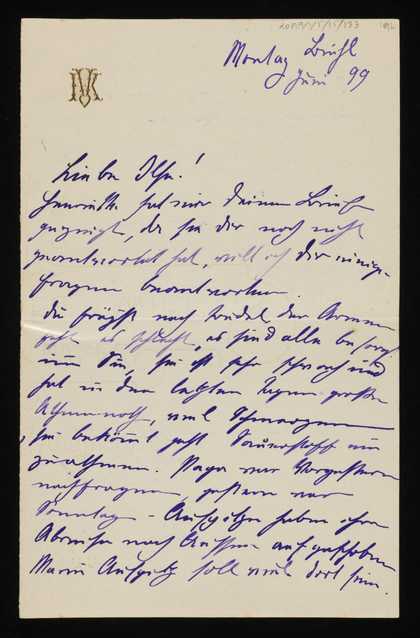 Montag Brühl
Juni 99
Liebe Ilse!
Henriette hat mir Deinen Brief
gezeigt, da sie Dir noch nicht
geantwortet hat, will ich Dir einige
Fragen beantworten.
Du frägst nach der Armen
geht es schlecht, es sind alle besorgt
um Sie, sie ist sehr schwach und
hat in den letzten Tagen großen
Athemnoth, viel Schmerzen
sie bekömt jetzt Sauerstoff ein
zuathmen. Papa war Vorgestern
nachfragen, gestern war
Sonntag - Auspitz haben ihre
Abreise nach Aussee aufgeschoben
Marie Auspitz soll viel dort sein.